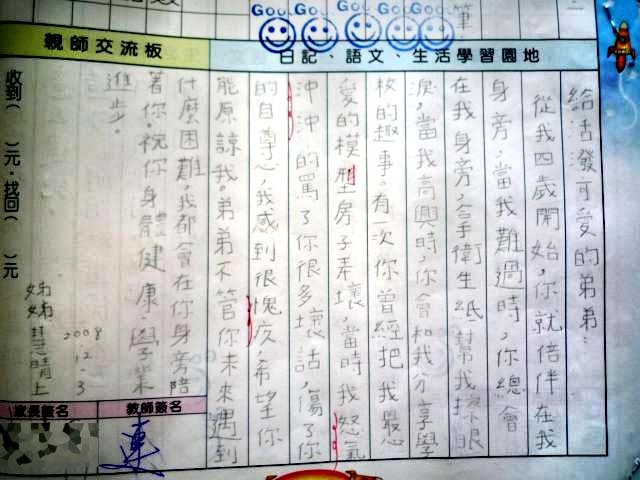 Goo Goo Goo Goo Goo
筆
親師交流板
日記、語文、生活學習園地
給活潑可愛的弟弟：
從我四歲開始，你就倍伴在我
身旁，當我難過時，你總會
在我身旁，拿衛生紙幫我擦眼
淚，當我高興時，你會和我分享學
校的趣事。有一次你曾經把我最心
愛的模型房子弄壞，當時我怒氣
沖沖的罵了你很多壞話，傷了你
的自尊心，我感到很愧疚，希望你
能原諒我。弟弟不管你未來遇到
什麼困難，我都會在你身旁陪
著你。祝你身體健康學業
進步。
2008.12.3
姊姊慧晴上
收到( )元·找回( )元
教師簽名
家長簽名